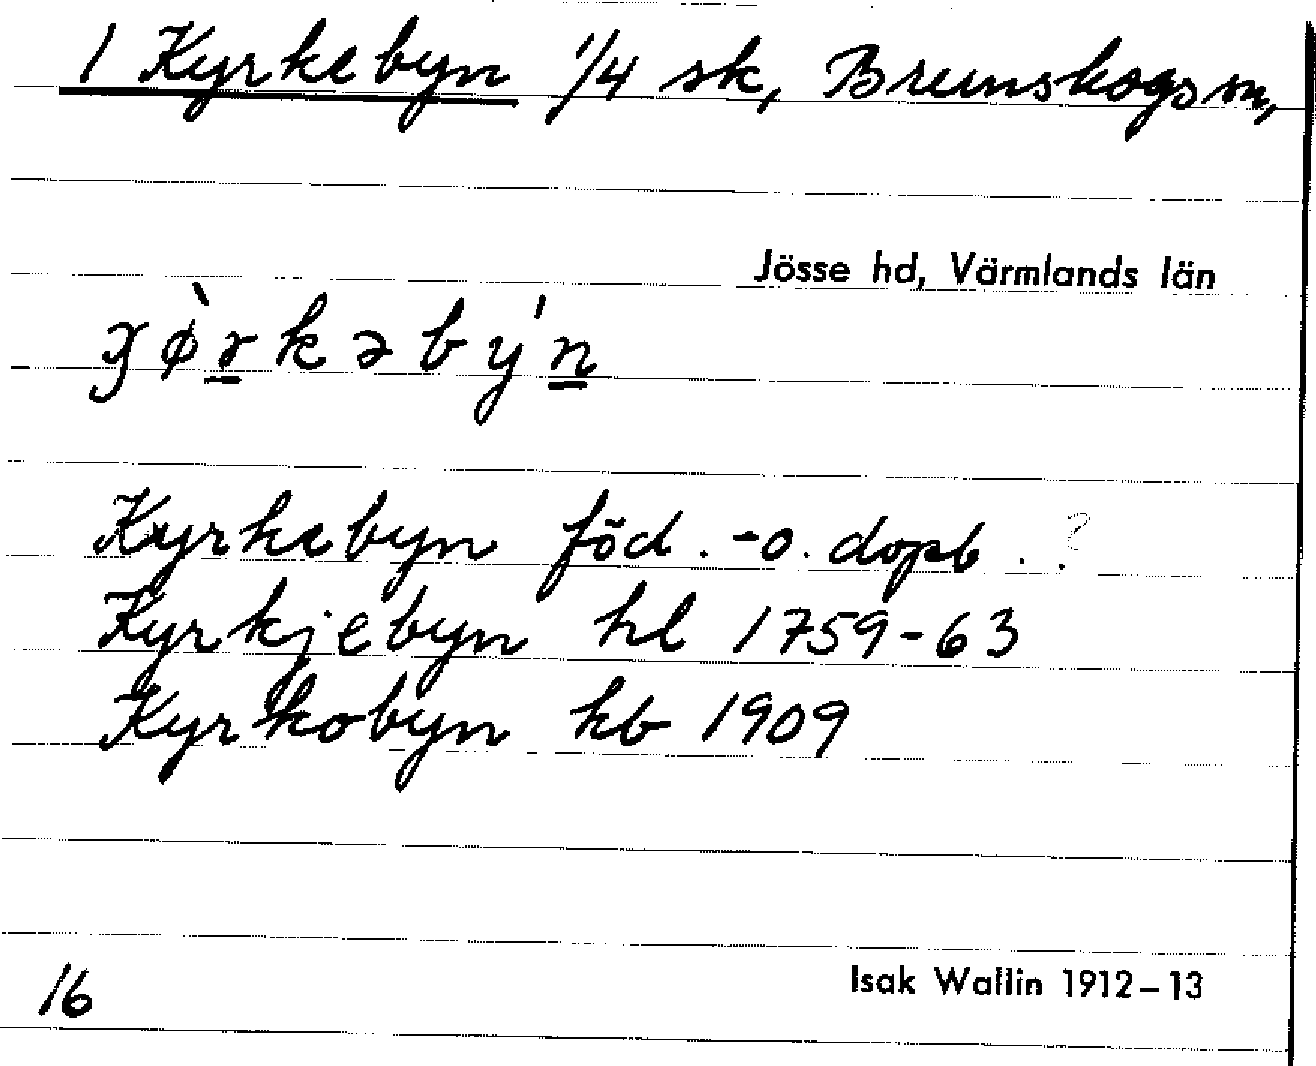 1 Kyrkebyn 1/4 sk, Brunskogs sn,
Jösse hd, Värmlands län
Kyrkebyn föd.-o. dopb. ?
Kyrkjebyn hl 1759-63
Kyrkobyn kb 1909
16
Isak Wallin 1912-13